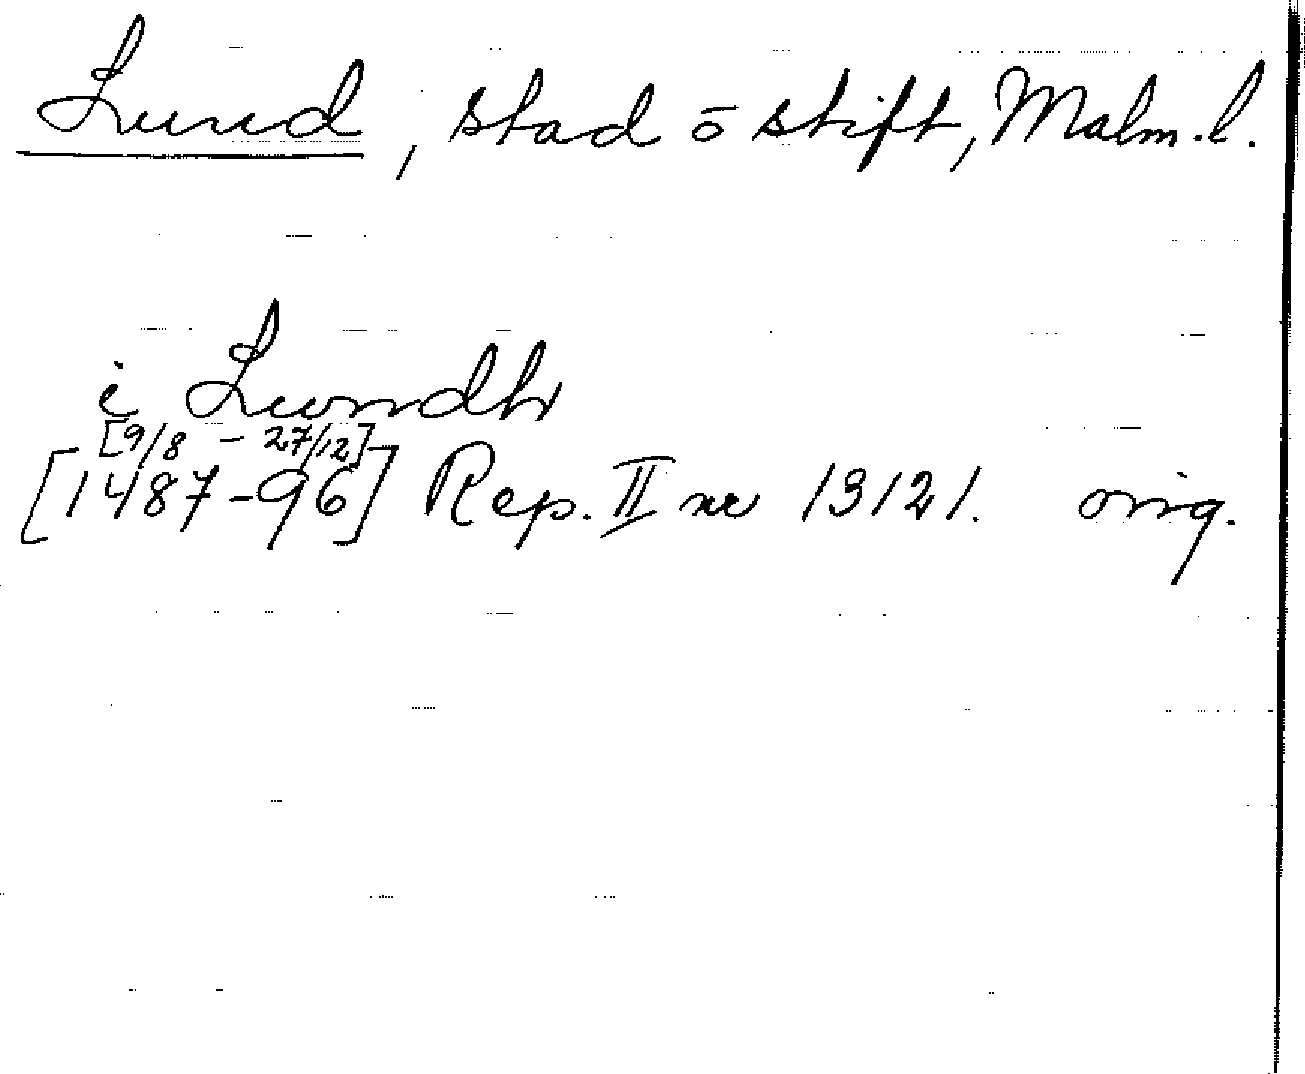 Lund, stad ō stift, Malm.l.
i Lwndh
[9/8 - 27/12]
[1487-96] Rep. II nr 13121. orig.